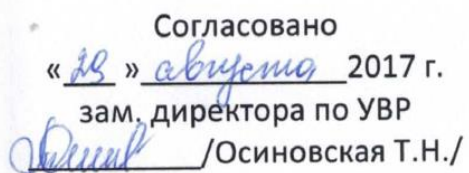 Согласовано
« 29 » августа 2017 г.
зам. директора по УВР
/Осиновская Т.Н./